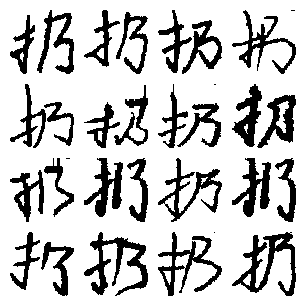 扔扔扔扔
扔扔扔扔
扔扔扔扔
扔扔扔扔